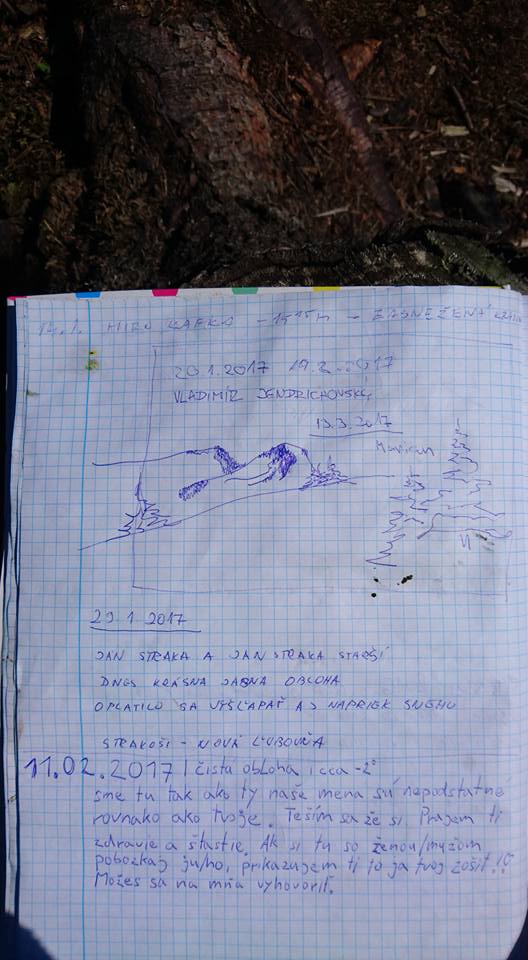 14.1. MIRO KAFKA - 14¹⁵ h - ZASNEŽENÁ
29.1.2017 19.2.2017
VLADIMÍR JENDRICHOVSKÝ,
19.3.2017
29.1.2017
JÁN STRAKA A JÁN STRAKA STARŠÍ
DNES KRÁSNA JASNÁ OBLOHA
OPLATILO SA VYŠĽAPAŤ AJ NAPRIEK SNEHU
STRAKOŠI - NOVÁ ĽUBOVŇA
11.02.2017 | čistá obloha, cca -2°
sme tu tak ako ty naše mena sú nepodstatné
rovnako ako tvoje. Teším sa že si. Prajem ti
zdravie a šťastie. Ak si tu so ženou/mužom
pobozkaj ju/ho, prikazujem ti to ja tvoj zošit!
Možeš sa na mňa vyhovoriť.